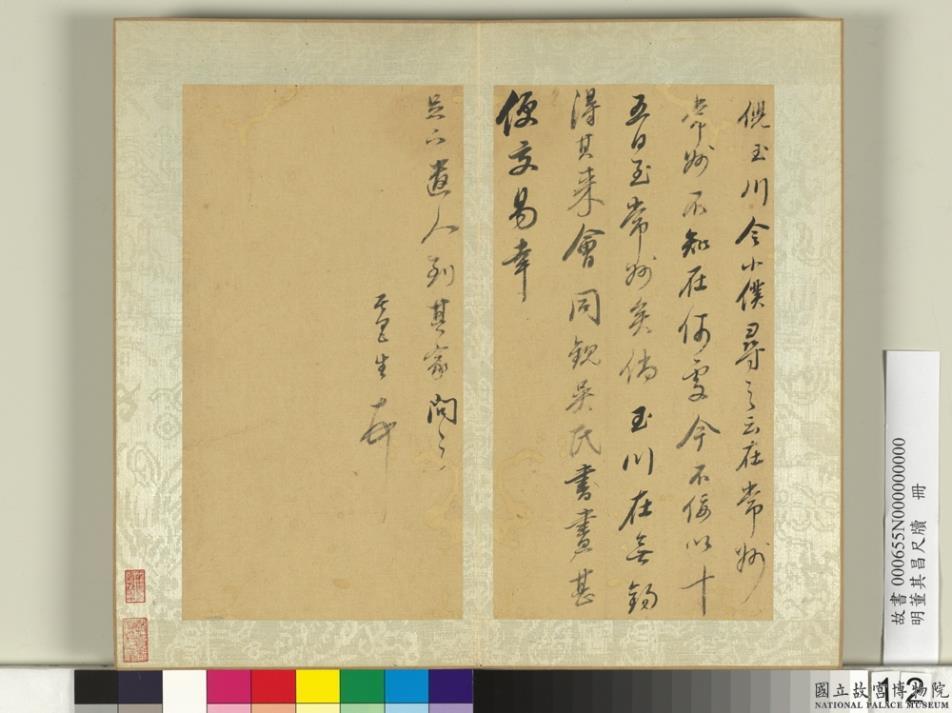 倪玉川令小僕尋之云在常州
常州不知在何處今不佞以十
五日至常州矣倘玉川在無錫
得其來會同觀吳氏書畫甚
便交易幸
足下遣人到其家問之
其昌生
故書 000655N000000000
明董其昌尺牘　冊
12
國立故宮博物院
NATIONAL PALACE MUSEUM